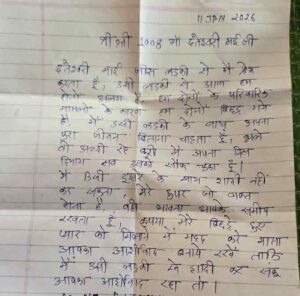 11 JAN 2026
श्री श्री 1008 माँ दंतेश्वरी माई जी
दंतेश्वरी माई जिस लड़की से मैं प्रेम
करता हूँ, उसी लड़की से आज हम
दोनों अलग हैं। हम दोनों के परिवारिक
मामलों के कारण हम दोनों बिछड़ गये
हैं मैं उसी लड़की के साथ अपना
पूरा जीवन बिताना चाहता हूँ।
अपना दिल
दिमाग सब उसको सौंप चुका हूँ।
मैं किसी दूसरे के साथ शादी नहीं
कर सकता, मेरे ऊपर जो
आपके समीप
रखता हूँ। कृपया मेरे बिछड़े हुए
प्यार को मिलाने में मदद करें माता
आपका आशीर्वाद बनाये रखें ताकि
मैं उसी लड़की से शादी कर सकूं
आपका आशीर्वाद रहा तो।